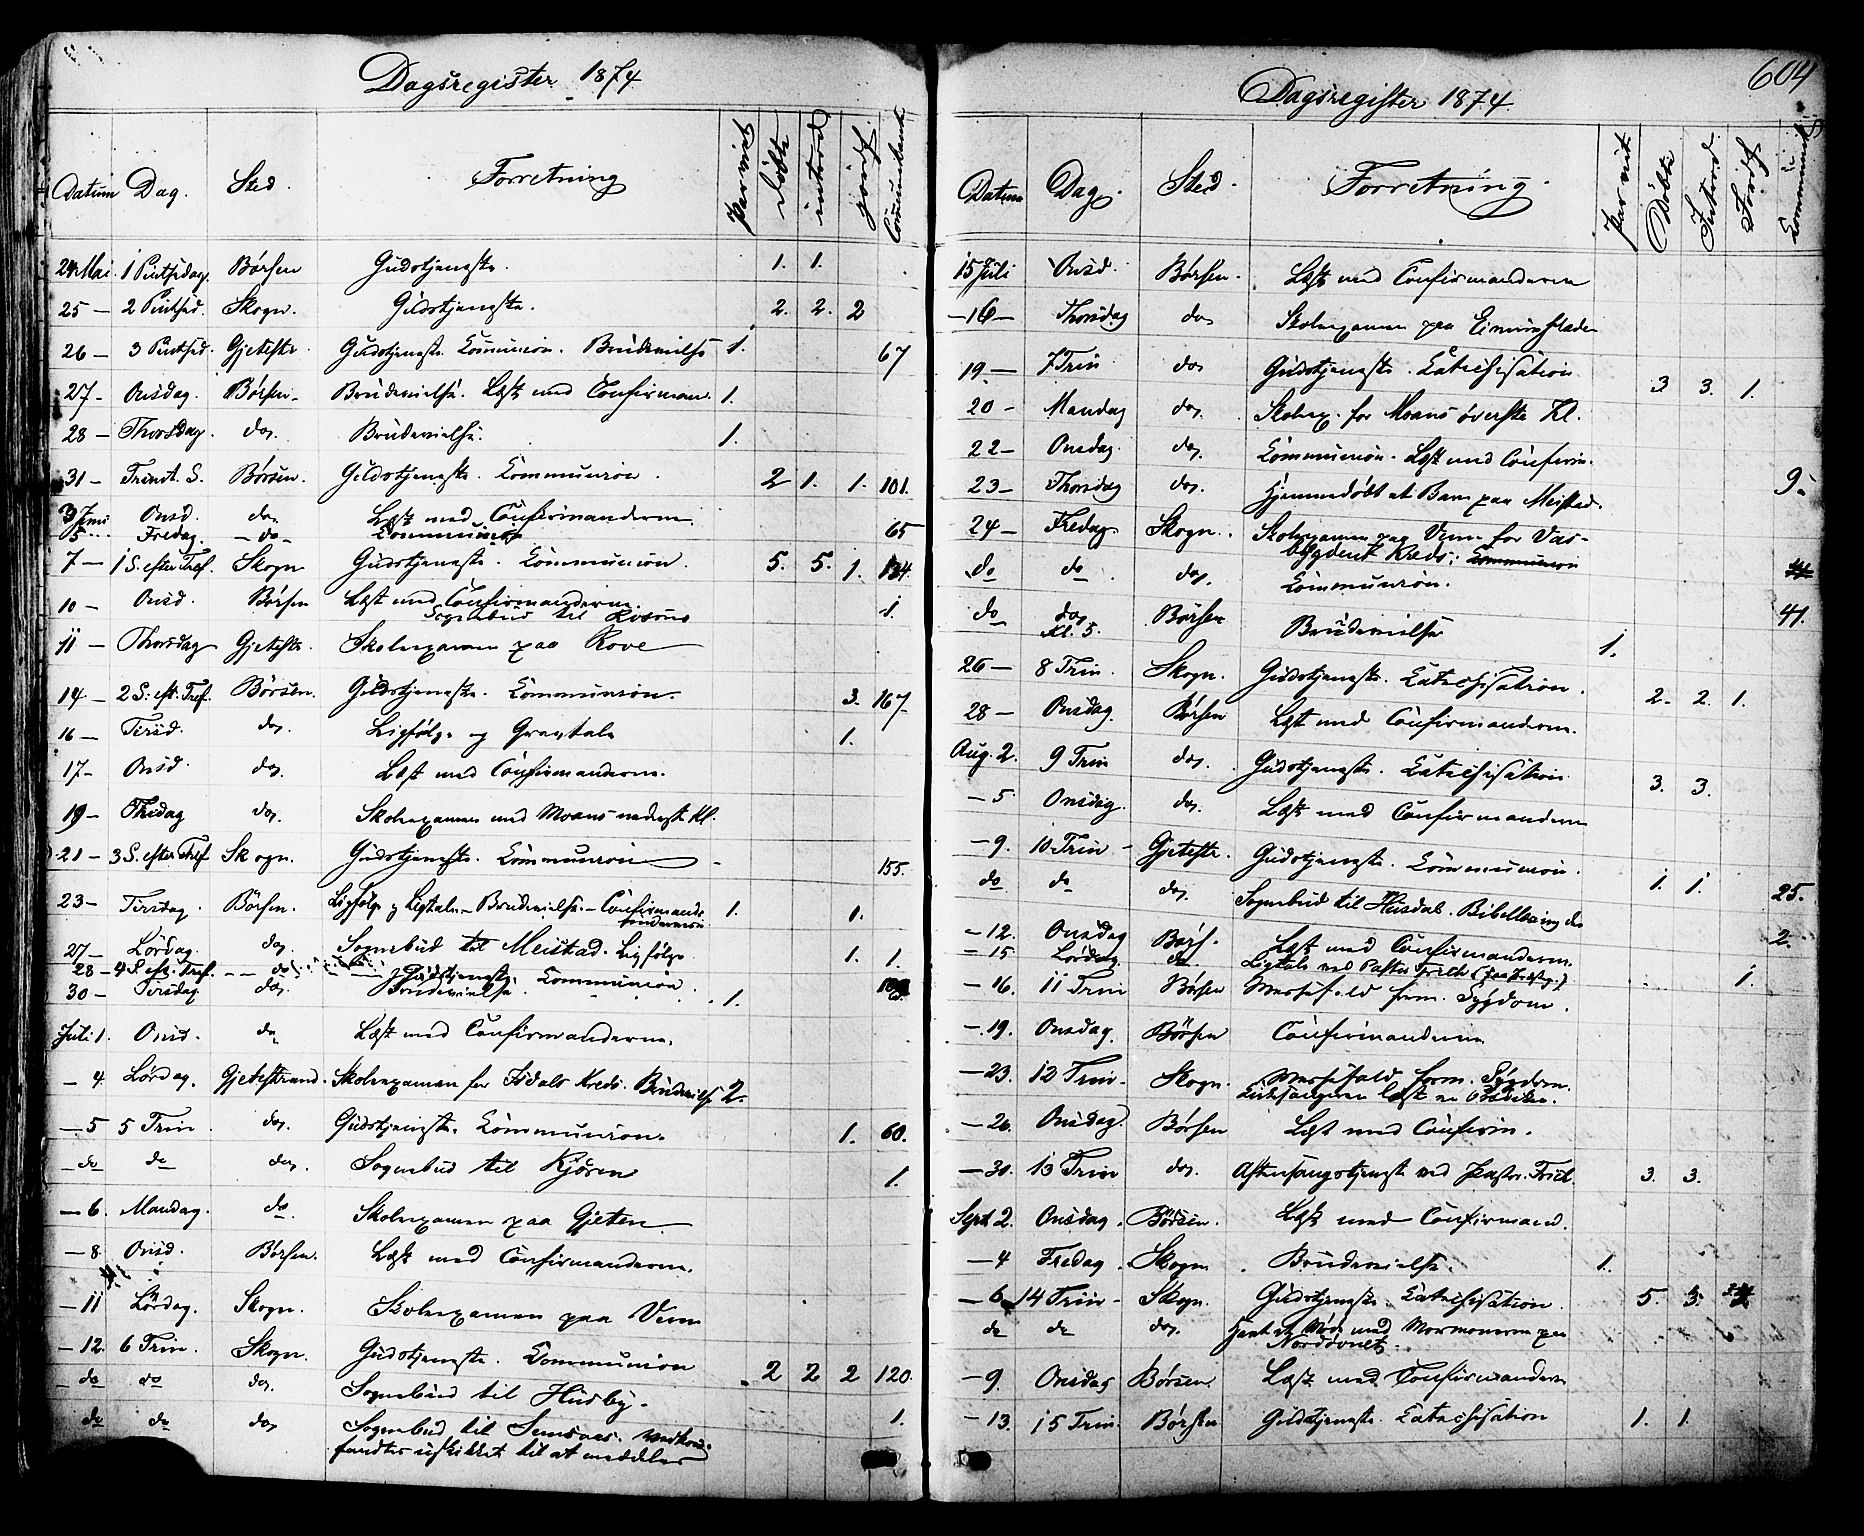 Dagsregister 1874
Datum Dag. Sted. Forretning Par viet Døbte introd jordf. Communikante
24 Mai. 1 Pintsedag. Børsen Gudstjeneste. 1. 1.
25 — 2 Pintsed. Skogn. Gudstjeneste. 2. 2. 2
26 — 3 Pintsed. Gjetestr. Gudstjeneste. Communion. Brudevielse 1. 67
27 - Onsdag. Børsen - Brudevielse. Læst med Confirman. 1.
28 — Thorsdag. do. Brudevielse. 1.
31 — Trinit. S. Børsen. Gudstjeneste. Communion. 2 1. 1. 101.
3 Juni Onsd. do. Læst med Confirmanderne.
5 Fredag. — do - Communion 65
7 — 1 S. efter Tref. Skogn Gudstjeneste. Communion. 5. 5. 1. 134.
10 — Onsd. Børsen Læst med Confirmanderne.
Sognebud til 1.
11 — Thorsdag Gjetestr. Skoleexamen paa Rove
14 — 2 S. eft. Tref. Børsen. Gudstjeneste. Communion. 3. 167
16 — Tirsd. do. Ligfølge og Gravtale 1.
17 - Onsd. do. Læst med Confirmanderne.
19 — do. Skoleexamen med Moans nederst Kl.
21 — 3 S. efter Tref. Skogn. Gudstjeneste. Communion - 155.
23 — Tirsdag. Børsen. Ligfølge og Ligtale. - Brudevielse. - Confirmand- 1. 1.
27 — Lørdag. do. Sognebud til Meistad. Ligfølge 1. 1.
28 — 4 S. eft. Tref. — do Gudstjeneste. Communion.
30 — Tirsdag. do. Brudevielse. 1.
Juli 1. Onsd. do Læst med Confirmanderne.
— 4 Lørdag. Gjetestrand. Skoleexamen for Kreds. Brudeviels 2.
— 5 5 Trin. do. Gudstjeneste. Communion. 1. 60.
— do do do. Sognebud til Kjøren 1.
— 6. Mandag. do Skoleexamen paa Gjeten
— 8. Onsd. Børsen. Læst med Confirmanderne.
— 11 Lørdag. Skogn. Skoleexamen paa Venn
— 12. 6 Trin. Skogn. Gudstjeneste. Communion 2 2 2 120.
— do do do. Sognebud til Husby.
do do do. Sognebud til 1.
til at meddele
604
Dagsregister 1874.
Datum Dag. Sted. Forretning. Par viet. Døbte Introd. Jordf. Kommunik
15 Juli Onsd. Børsen. Læst med Confirmanderne
— 16 — Thorsdag do. Skoleexamen paa
19 — 7 Trin do. Gudstjeneste. Catechisation 3 3. 1.
20 - Mandag do. Skoleex. for Moans øverste Kl.
22 — Onsdag. do. Communion. Læst med Confirm.
23 — Thorsdag do. Hjemmedøbt et Barn paa Meistad. 9.
24 — Fredag. Skogn. Skoleexamen paa Venn for
Kreds. Communion
do do do. Communion. 41.
do do Børsen Brudevielse 1.
Kl. 5.
26 — 8 Trin. Skogn. Gudstjeneste. Catechisation. 2. 2. 1.
28 — Onsdag. Børsen Læst med Confirmanderne.
Aug. 2. 9 Trin do. Gudstjeneste. Catechisation 3. 3.
— 5 Onsdag. do. Læst med Confirmanderne
— 9. 10 Trin — Gjetestr. Gudstjeneste. Communion. 1. 1. 25.
do do do. Sognebud til Husdal. 2.
— 12. Onsdag Børs. Læst med Confirmanderne.
— 15. Lørdag do. Ligtale ved Pastor 1.
— 16. 11 Trin Børsen Messefald form. Sygdom.
— 19. Onsdag. Børsen Confirmanderne
— 23. 12 Trin. Skogn. Messefald form. Sygdom.
Kirkesangeren læst en
— 26. Onsdag. Børsen Læst med Confirm.
— 30. 13 Trin do. Aftensangstjeneste ved Pastor 3. 3.
Sept 2. Onsdag. Børsen. Læst med Confirmand.
— 4 Fredag. Skogn. Brudevielse. 1.
— 6 14 Trin - Skogn. Gudstjeneste. Catechisation. 5. 3.
do do do. Møde med Mormonerne paa
— 9. Onsdag Børsen. Læst med Confirmandern
— 13. 15 Trin. Børsen Gudstjeneste. Catechisation 1. 1.